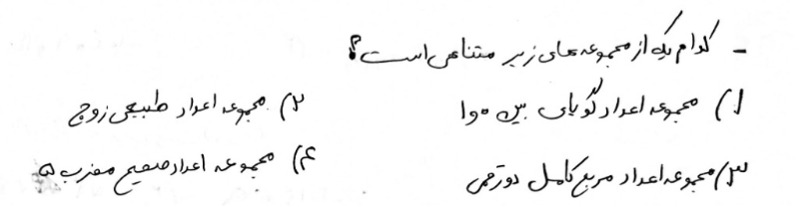 - کدام یک از مجموعه های زیر متناهی است؟
۱) مجموعه اعداد گویای بین ۰ و ۱
۲) مجموعه اعداد طبیعی زوج
۳) مجموعه اعداد مربع کامل دو رقمی
۴) مجموعه اعداد صحیح مضرب ۵